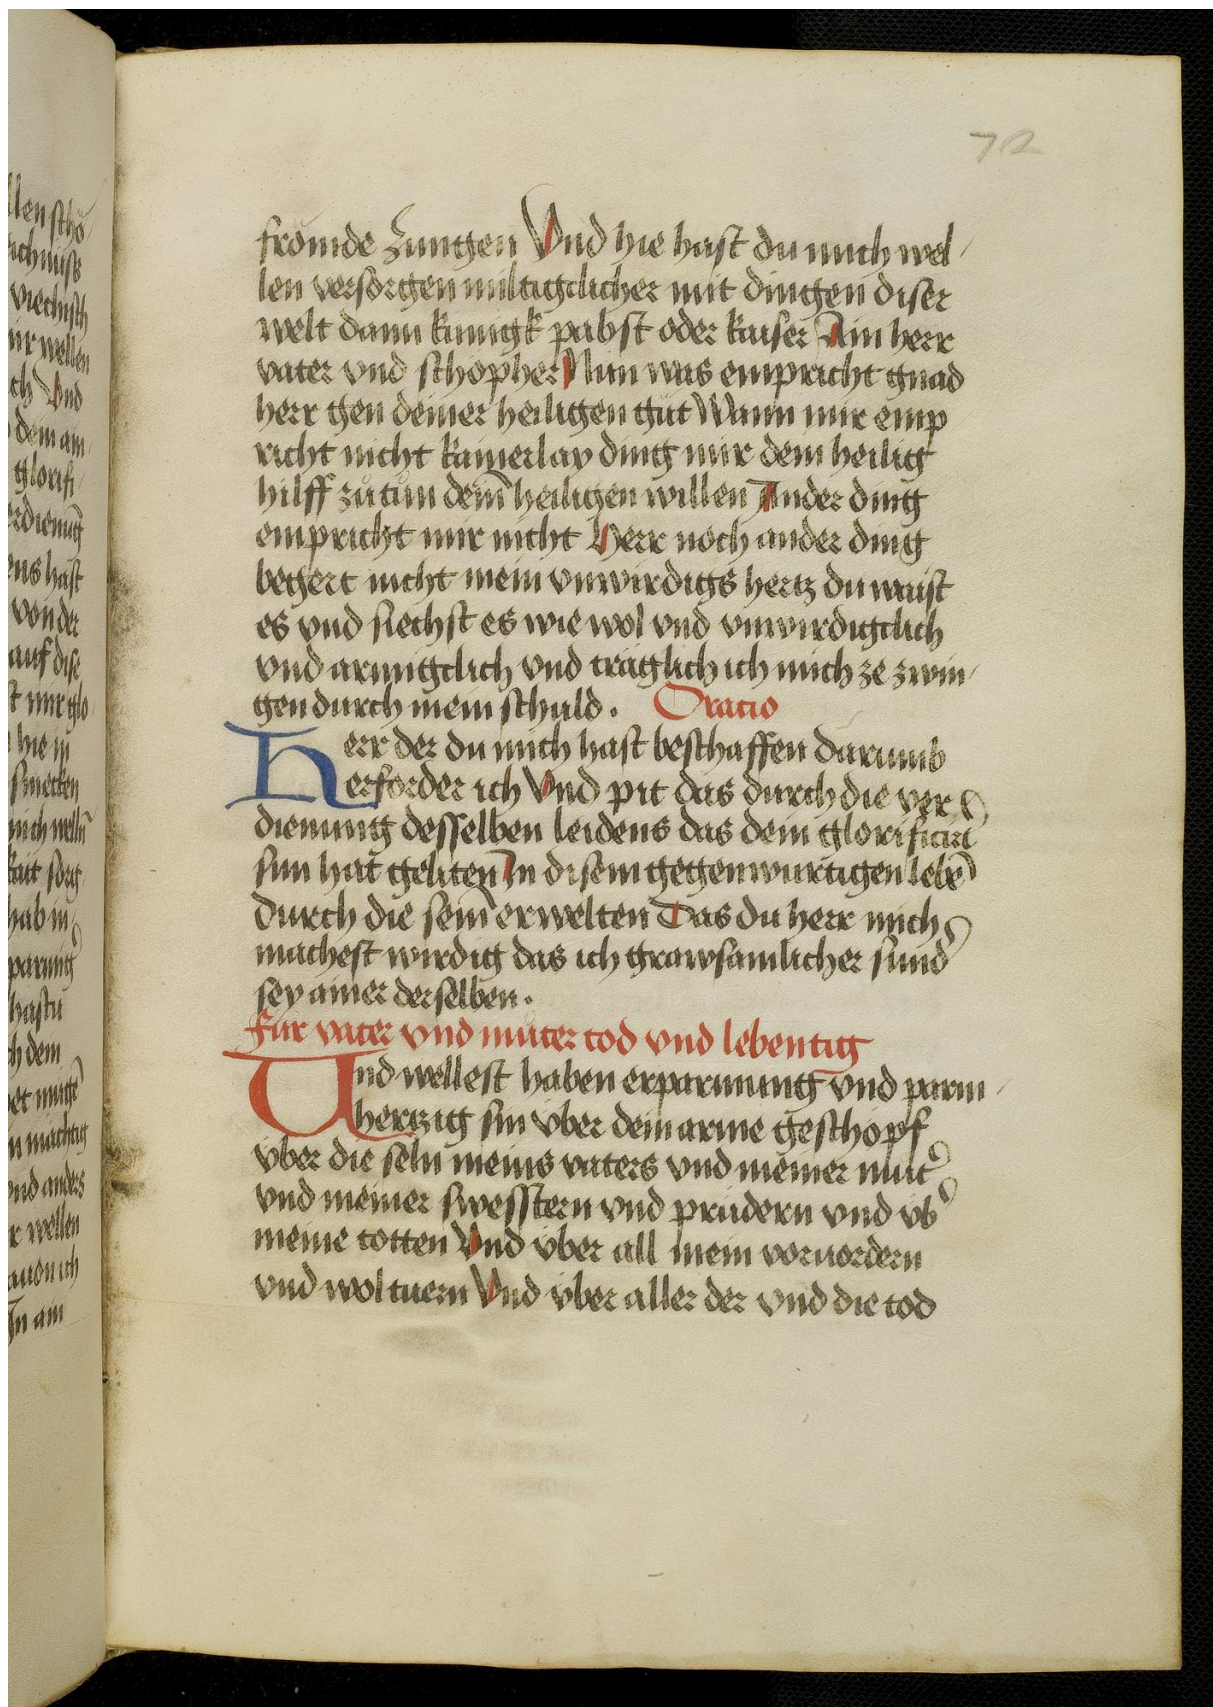 72
frömde zungen Vnd hie hast du mich wel-
len versorgen miltigclicher mit dingen diser
welt dann kunigk pabst oder kaiser Ain herr
vater vnd schöpher Nun was empricht gnad
herr gen deiner heiligen güt Wann mir emp
richt nicht kainerlay ding mir dem heilig
hilff zů tůn dein̄ heiligen willen Ander ding
empricht mir nicht Herr noch ander ding
begert nicht mein vnwirdigs hertz du waist
es vnd siechst es wie wol vnd vnwirdigclich
vnd armigclich vnd träglich ich mich ze zwin-
gen durch mein schuld. Oratio
Herr der du mich hast beschaffen darumb
erforder ich Vnd pit das durch die ver
dienung desselben leidens das dein glorificirt
sun hat geliten In disem gegenwurtigen lebē
durch die sein̄ erwelten Das du herr mich
machest wirdig das ich grawsamlicher sund
sey ainer derselben.
Fur vater vnd můter tod vnd lebentig
Vnd wellest haben erparmung vnd parm-
hertzig sin vber dein arme geschöpf
vber die seln meins vaters vnd meiner mut
vnd meiner swesstern vnd prüdern vnd vb
meine totten Vnd vber all mein voruordern
vnd woltuern Vnd vber aller der vnd die tod